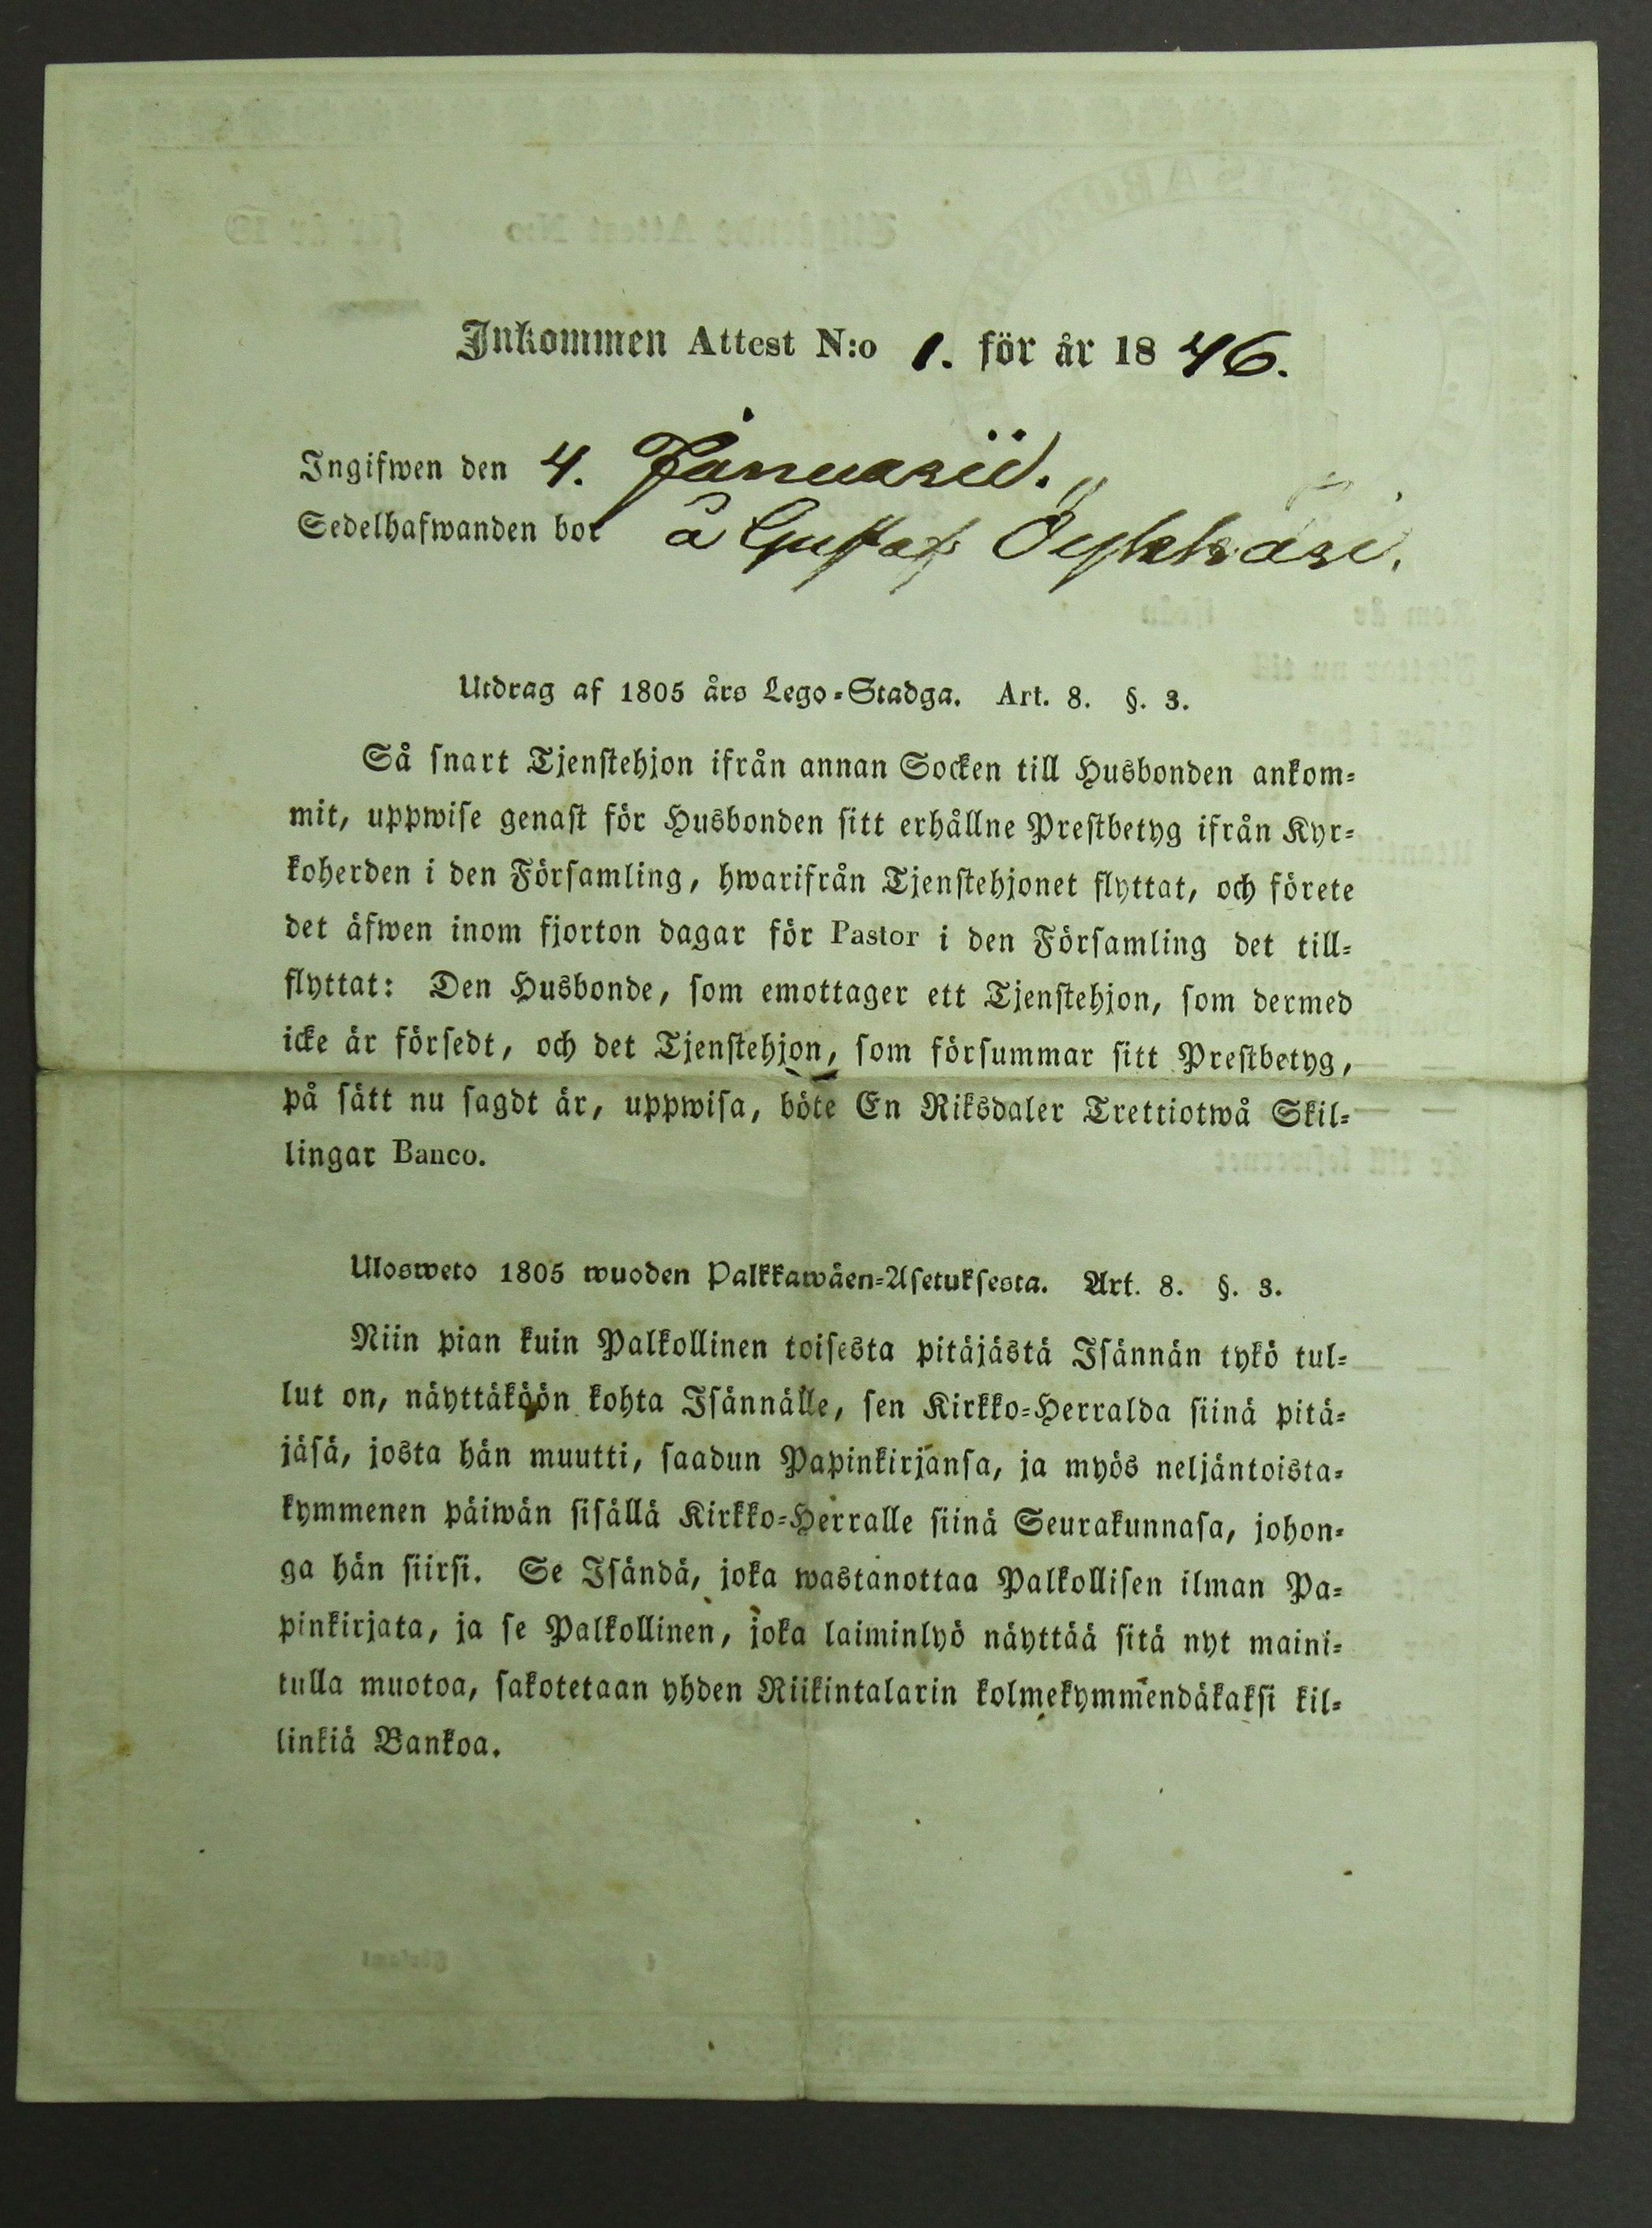 Inkommen Attest N:o 1. för år 1846.
Ingifwen den 4. Januarii.
Sedelhafwanden bor å Gustafs
Utdrag af 1805 års Lego-Stadga. Art. 8. §. 3.
Så snart Tjenstehjon ifrån annan Socken till Husbonden ankom-
mit, uppwise genast för Husbonden sitt erhållne Prestbetyg ifrån Kyr-
koherden i den Församling, hwarifrån Tjenstehjonet flyttat, och förete
det äfwen inom fjorton dagar för Pastor i den Församling det till-
flyttat: Den Husbonde, som emottager ett Tjenstehjon, som dermed
icke är försedt, och det Tjenstehjon, som försummar sitt Prestbetyg,
på sätt nu sagdt är, uppwisa, böte En Riksdaler Trettiotwå Skil-
lingar Banco.
Ulosweto 1805 wuoden Palkkawäen-Asetuksesta. Art. 8. §. 3.
Niin pian kuin Palkollinen toisesta pitäjästä Isännän tykö tul-
lut on, näyttäköön kohta Isännälle, sen Kirkko-Herralda siinä pitä-
jäsä, josta hän muutti, saadun Papinkirjansa, ja myös neljäntoista-
kymmenen päiwän sisällä Kirkko-Herralle siinä Seurakunnasa, johon-
ga hän siirsi. Se Isändä, joka wastanottaa Palkollisen ilman Pa-
pinkirjata, ja se Palkollinen, joka laiminlyö näyttää sitä nyt maini-
tulla muotoa, sakotetaan yhden Riikintalarin kolmekymmendäkaksi kil-
linkiä Bankoa.